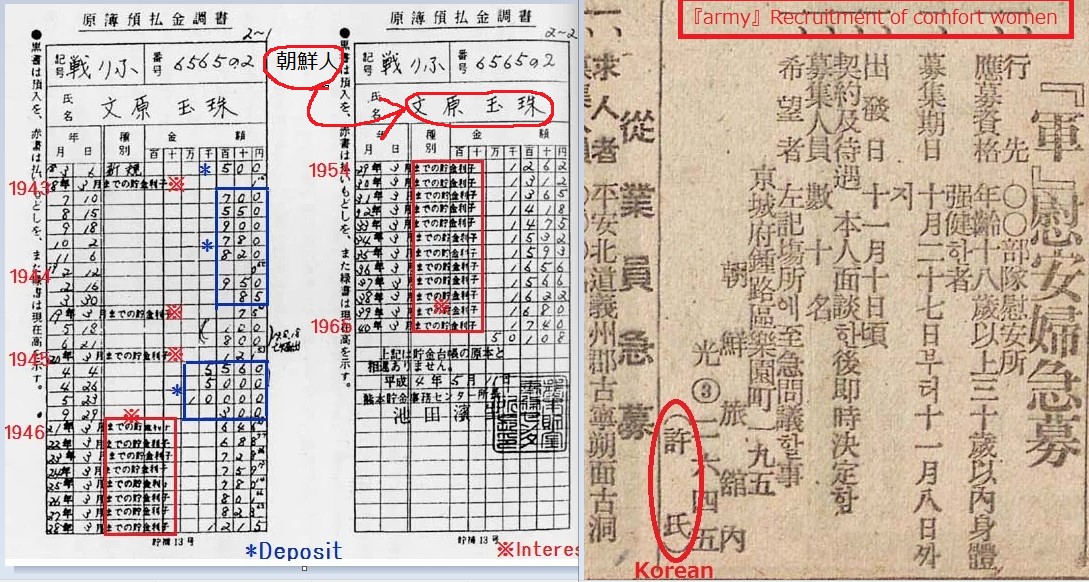 原簿預払金調書
2~1
●黒書は預入を、赤書は払いもどしを、また緑書は現在高を示す。
記号 戦りふ 番号 656502
氏名 文原 玉珠
年 月 日 種別 金額
百 十 万 千 百 十 円
18 3 6 新規 500
1943
18年 3月までの貯金利子 ※
7 10 700
8 15 550
9 18 900
10 2 780
11 6 820
1944
2 16 950
3 30 85
19年 3月までの貯金利子 ※
5 18 100
6 21 800
1945
20年 3月までの貯金利子 ※
4 4 5560
4 26 5000
5 23 10000
9 29 300
※
1946
21年 3月までの貯金利子
22年 3月までの貯金利子
23年 3月までの貯金利子
24年 3月までの貯金利子
25年 3月までの貯金利子
26年 3月までの貯金利子
27年 3月までの貯金利子
28年 3月までの貯金利子 1215
貯補13号
*Deposit
朝鮮人
原簿預払金調書
2~2
●黒書は預入を、赤書は払いもどしを、また緑書は現在高を示す。
記号 戦りふ 番号 656502
氏名 文原 玉珠
年 月 日 種別 金額
百 十 万 千 百 十 円
1954
29年 3月までの貯金利子 1262
30年 3月までの貯金利子 1312
31年 3月までの貯金利子 1365
32年 3月までの貯金利子 1418
33年 3月までの貯金利子 1475
34年 3月までの貯金利子 1532
35年 3月までの貯金利子 1593
36年 3月までの貯金利子 1656
37年 3月までの貯金利子 1566
38年 3月までの貯金利子 1622
39年 3月までの貯金利子 1680
40年 3月までの貯金利子 1740
50108
上記は貯金台帳の原本と
相違ありません。
平成 4年 5月 11日
熊本貯金事務センター所長
池田 濱
貯補13号
※Interes
『army』Recruitment of comfort women
『軍』慰安婦急募
行先 〇〇部隊慰安所
應募資格 年齡十八歲以上三十歲以內身體强健한者
募集期日 十月二十七日부터十一月八日까지
出發日 十一月十日頃
契約及待遇 本人面談한後卽時決定함
募集人員 數十名
希望者 左記場所에至急問議할事
京城府鍾路區樂園町一九五
朝鮮旅館內
光③二六四五
(許氏)
Korean
從業員急募
求人者 平安北道義州郡古寧朔面古洞